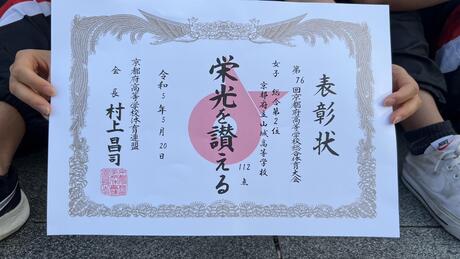 表彰状
第76回京都府高等学校総合体育大会
女子 総合第2位
京都府立山城高等学校
112点
栄光を讃える
令和5年5月20日
京都府高等学校体育連盟
会長 村上昌司